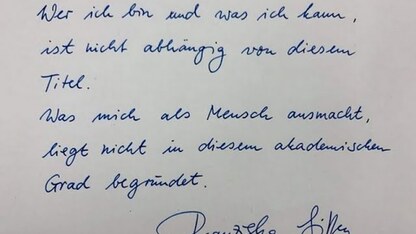 Wer ich bin und was ich kann,
ist nicht abhängig von diesem
Titel.
Was mich als Mensch ausmacht,
liegt nicht in diesem akademischen
Grad begründet.